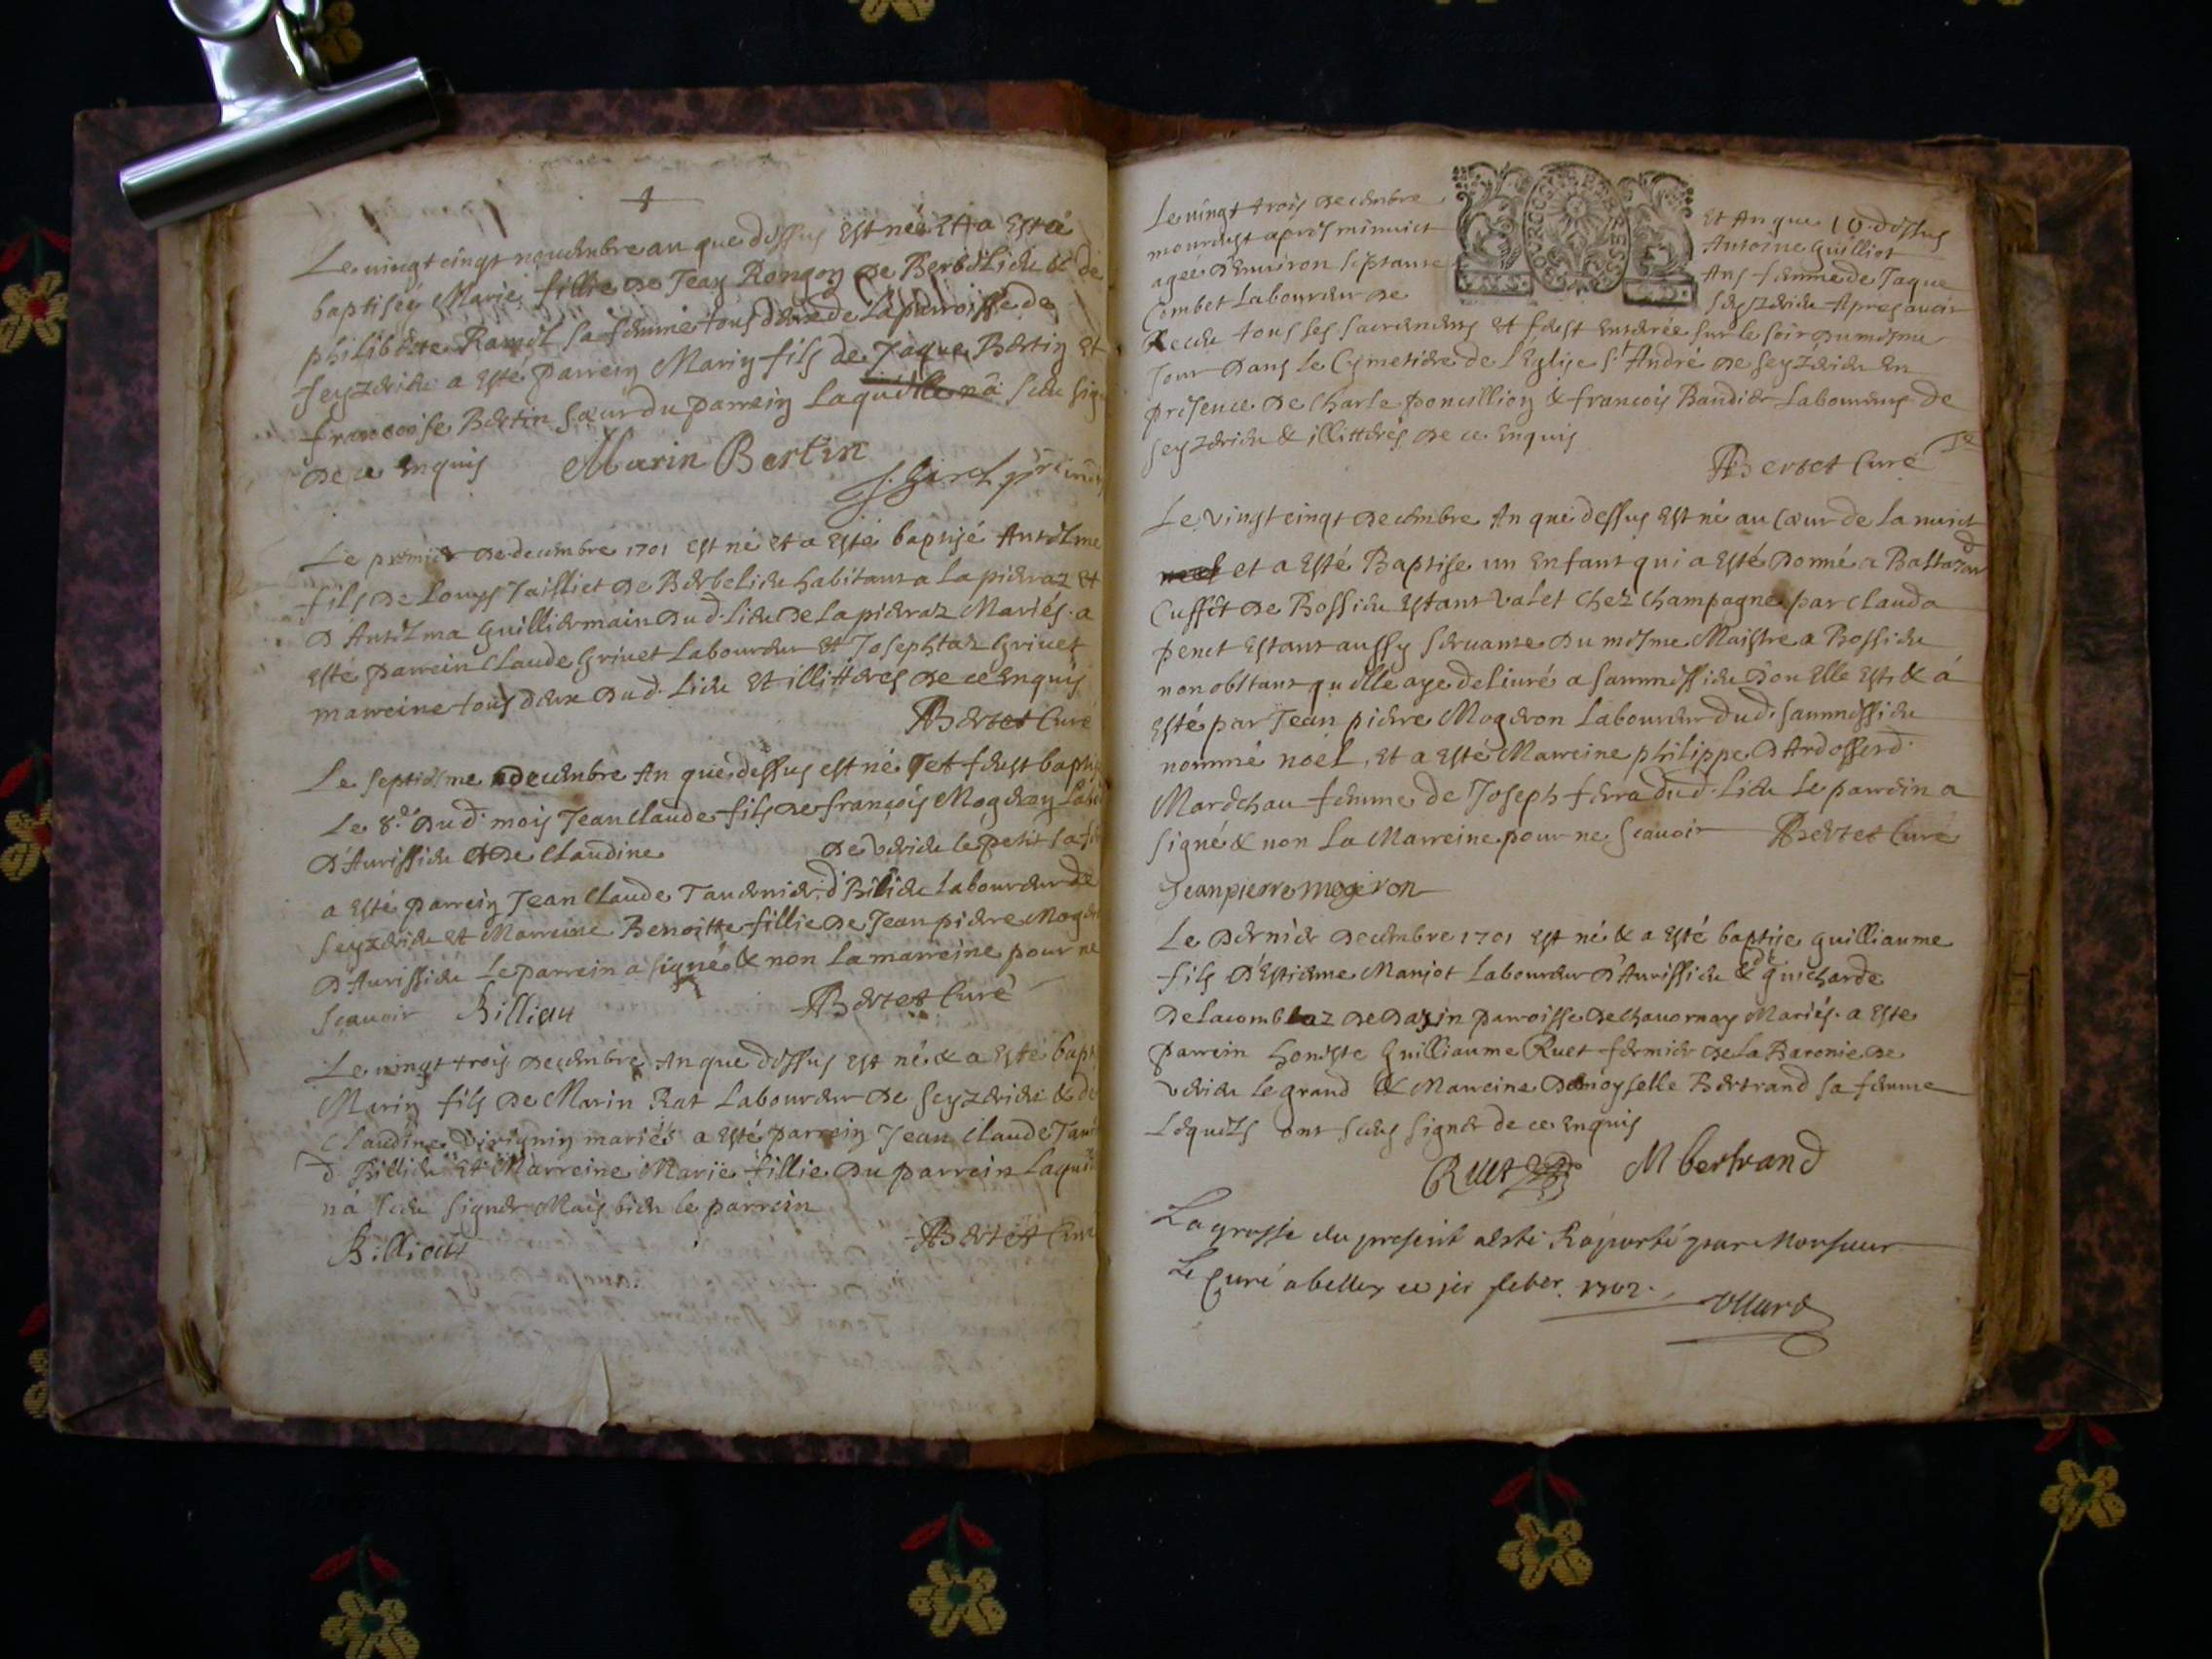 Le vingt cinqt novembre an que dessus Est née Et a Esté
baptiseé Marie fillie de Jean Rongon de Berbelieu & de
philiberte Ramel sa femme tous deux de La parroisse de
Seyzerieu a Esté parrein Marin fils de Jaque Bertin Et
francoise Bertin Sœur du parrein Laquelle nâ Sceu sig
de ce Enquis Marin Bertin
Le premier de decembre 1701 est né et a Esté baptisé Antelme
fils de Louys Jailliet de Berbelieu habitant a La pierraz et
d'Antelma Guilliermain dud. Lieu de La pierraz Mariés. a
Esté parrein Claude Grivet Laboureur et Josephtaz Grivet
marreine tous deux dud. Lieu Et illitterés de ce Enquis
Bertet Curé
Le septiesme decembre An que dessus est né et feust baptis
Le 8.e dud. mois Jean Claude fils de francois Mogeron Lab
d'Aurissieu et de Claudine de verieu le petit sa
a Esté parrein Jean Claude Tavernier d Billieu Laboureur de
Seyzerieu et Marreine Benoitte fillie de Jean pierre Moger
d'Aurissieu Le parrein a signé & non La marreine pour ne
scavoir Billiau Bertet Curé
Le vingt trois decembre An que dessus est né & a Esté bapt
Marin fils de Marin Rat Laboureur de Seyzerieu & de
Claudine mariés a esté parrein Jean Claude Tav
d. Billieu Et Marreine Marie fillie du parrein Laquelle
n'á sceu signer Mais bien le parrein
Billiau Bertet Curé
Le vingt trois decembre Et An que dessus
mourust apres minuict Antoine Guilliot
agée d'Environ septante Ans femme de Jaque
Combet Laboureur de Seyzerieu Apres avoir
Receu tous ses sacremens Et feust enterrée sur le soir du mesme
Jour dans le Cymetiere de L'Eglise St André de Seyzerieu En
presence de Charle poncillion & francois Baudier Laboureurs de
Seyzerieu & illitterés de ce Enquis
Bertet Curé
Le vingt cinqt decembre An que dessus Est né au Cœur de La nuict
et a Esté Baptise un Enfant qui a Esté donné a Baltazard
Cuffet de Bossieu Estant valet chez Champagne par Clauda
penet Estant aussy servante du mesme Maistre a Bossieu
nonobstant quelle aye delivré a Sammessieu d'ou Elle Est & á
Esté par Jean pierre Mogeron Laboureur dud. Sammessieu
nommé noel, et a Esté Marreine philippe
Mareschau femme de Joseph ferra dud. Lieu Le parrein a
signé & non La Marreine pour ne scavoir Bertet Curé
Jeanpierre mogeron
Le dernier decembre 1701 est né & a Esté baptise guilliaume
fils d'Estienne Manjot Laboureur d'Aurissieu & de guicharde
delacomblaz de dazin parroisse de Chavornay Mariés. a Este
parrein honeste Guilliaume Ruet fermier de La Baronie de
verieu le grand & Marreine demoyselle Bertrand sa femme
Lequels ont sceus signer de ce Enquis
Ruet M bertrand
La grosse du present a esté Raporté par Monsieur
Le Curé a belley ce jer feber. 1702.